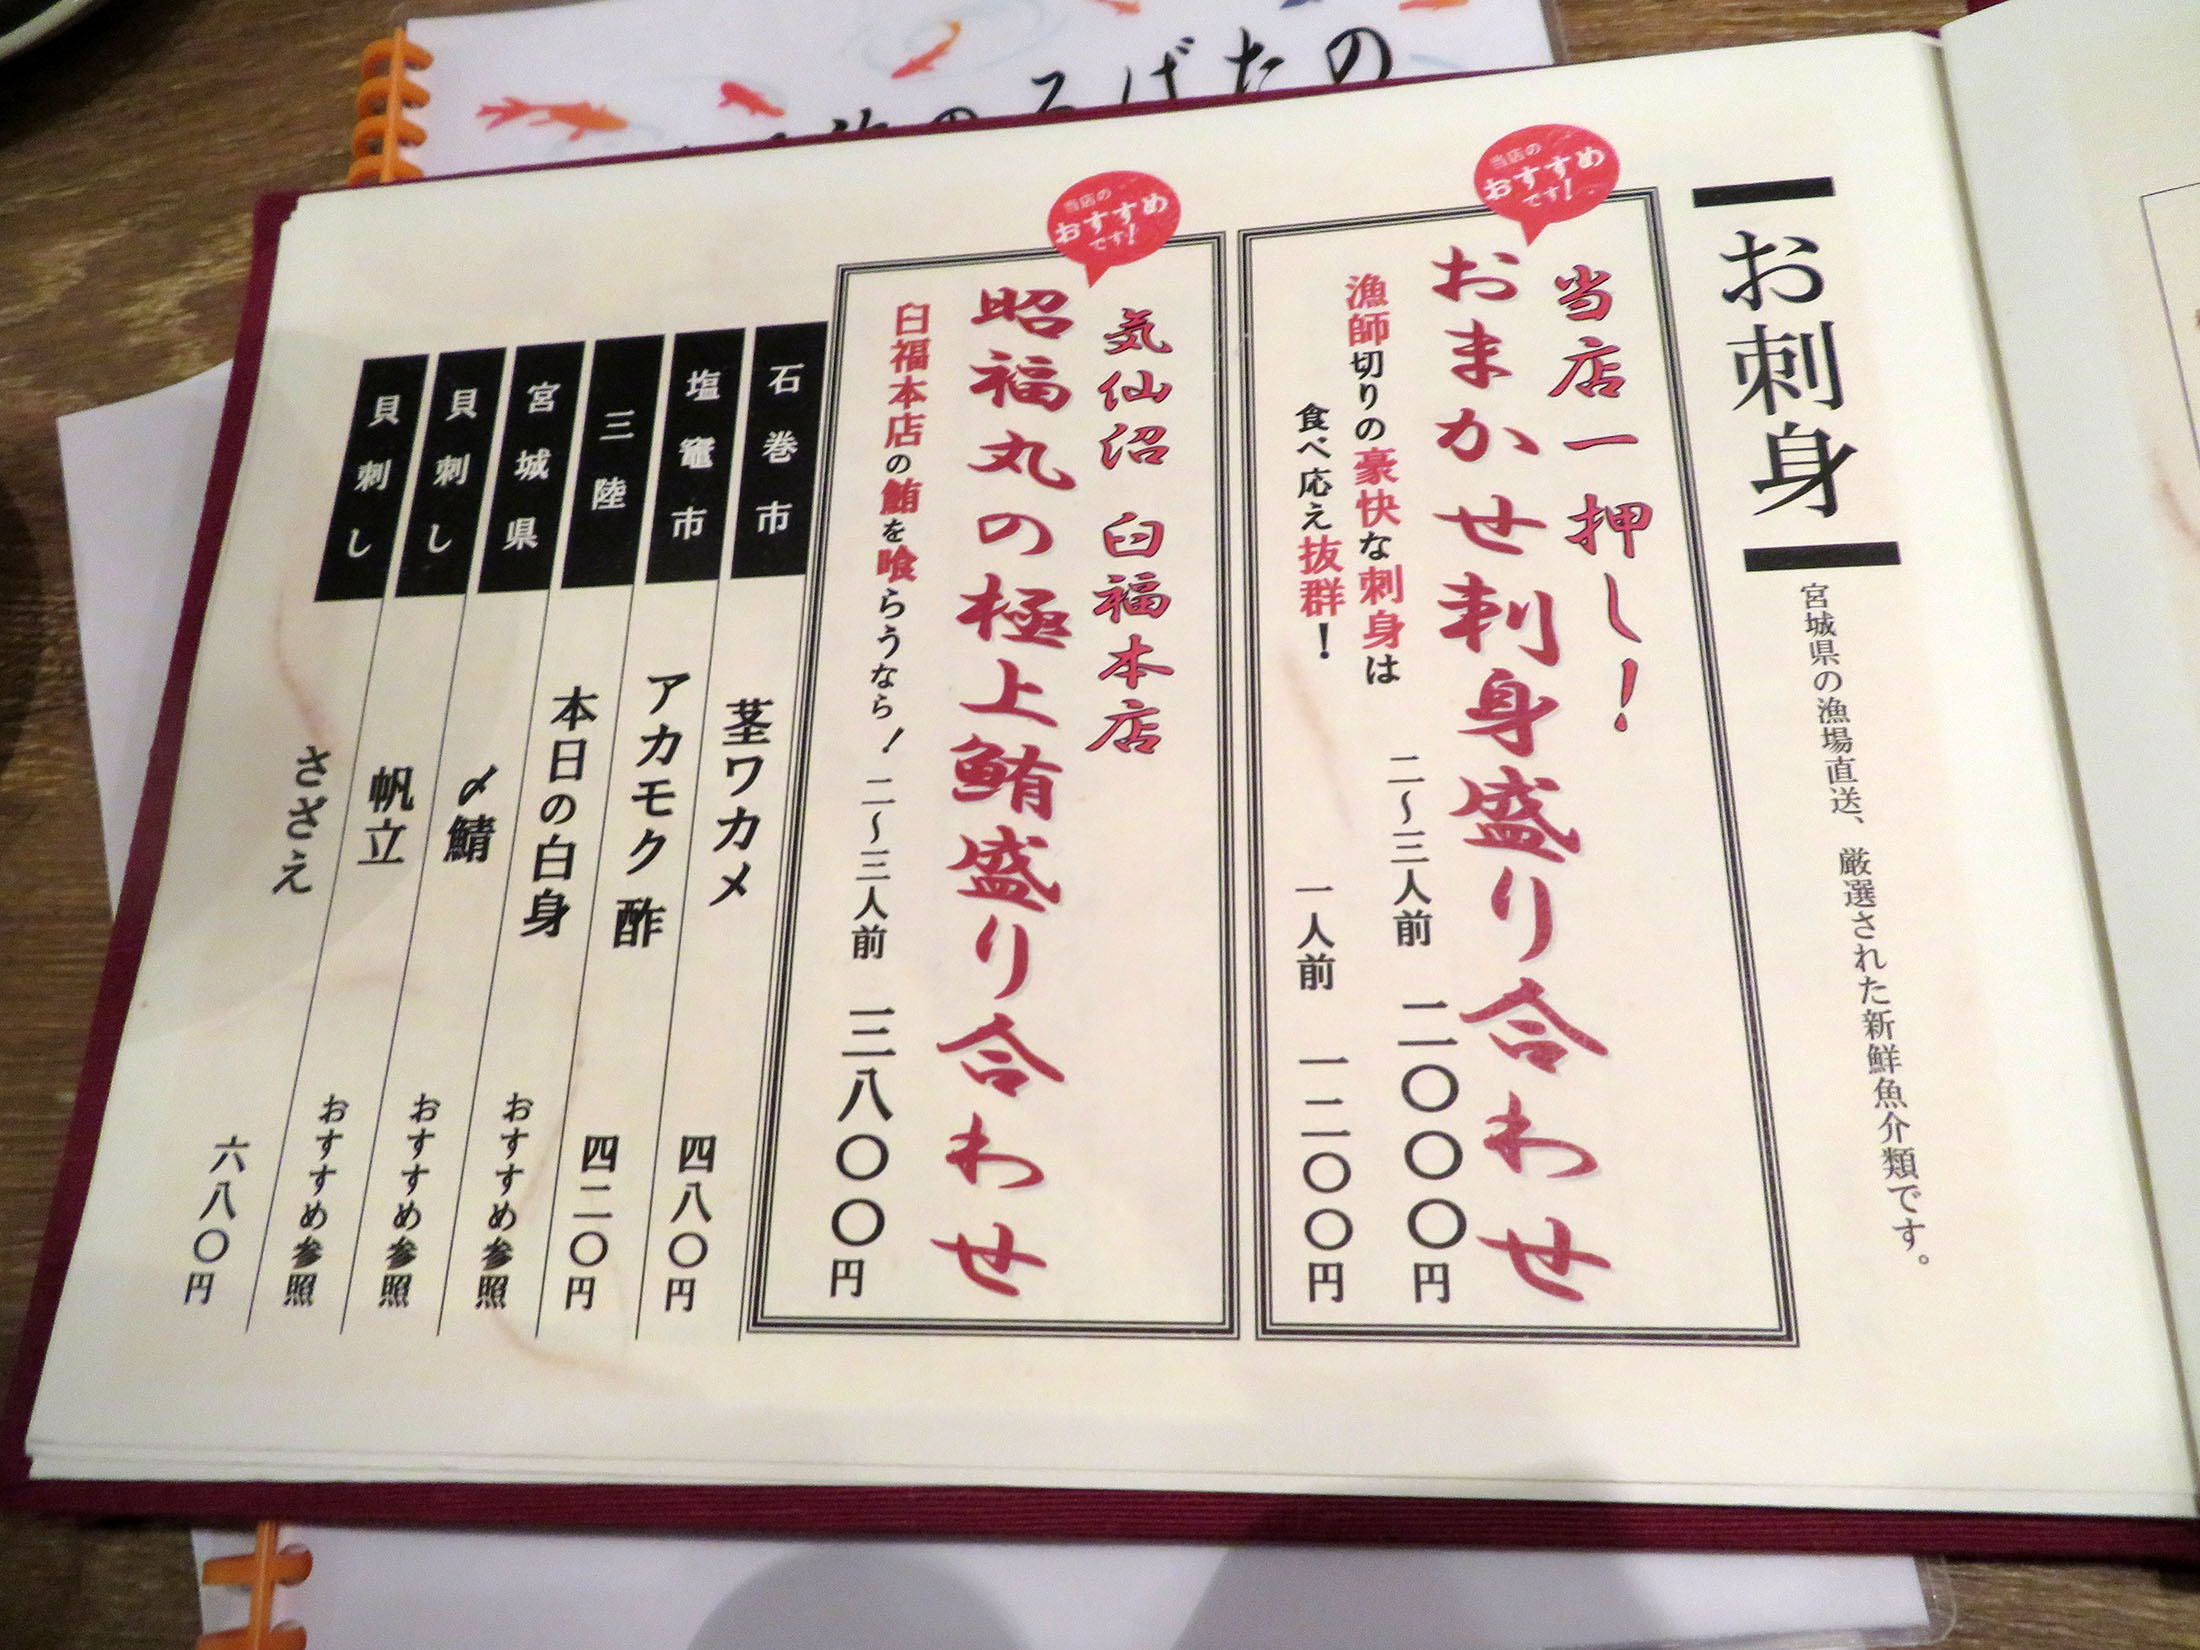 お刺身
宮城県の漁場直送、厳選された新鮮魚介類です。
当店の
おすすめ
です!
当店一押し!
おまかせ刺身盛り合わせ
漁師切りの豪快な刺身は
食べ応え抜群!
二〜三人前 二〇〇〇円
一人前 一二〇〇円
当店の
おすすめ
です!
気仙沼 臼福本店
昭福丸の極上鮪盛り合わせ
臼福本店の鮪を喰らうなら! 二〜三人前 三八〇〇円
石巻市 茎ワカメ 四八〇円
塩竈市 アカモク酢 四二〇円
三陸 本日の白身 おすすめ参照
宮城県 〆鯖 おすすめ参照
貝刺し 帆立 おすすめ参照
貝刺し さざえ 六八〇円
ろばたの